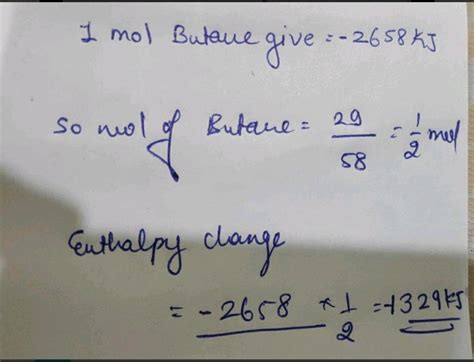 1 mol Butane give = -2658 KJ
So mol of Butane = 29/58 = 1/2 mol
Enthalpy change
= -2658 × 1/2 = -1329 KJ